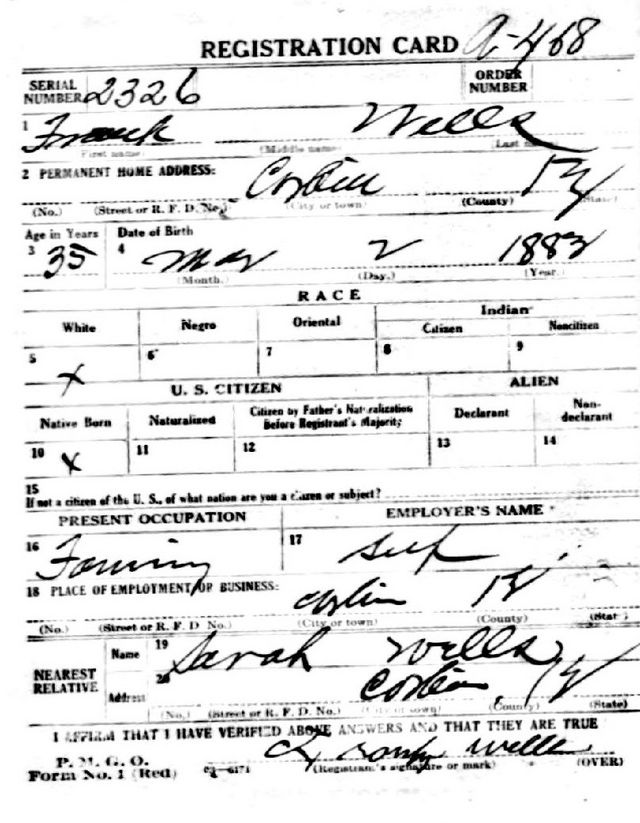 REGISTRATION CARD A-468
SERIAL NUMBER 2326 ORDER NUMBER
1 Frank Wells
First name (Middle name) Last name
2 PERMANENT HOME ADDRESS: Corbin Ky
(No.) (Street or R. F. D. No.) (City or town) (County) (State)
Age in Years Date of Birth
3 35 4 May 2 1883
(Month.) (Day.) (Year.)
RACE
White Negro Oriental Indian
Citizen Noncitizen
5 X 6 7 8 9
U. S. CITIZEN ALIEN
Native Born Naturalized Citizen by Father's Naturalization Before Registrant's Majority Declarant Non-declarant
10 X 11 12 13 14
15
If not a citizen of the U. S., of what nation are you a citizen or subject?
PRESENT OCCUPATION EMPLOYER'S NAME
16 Farming 17 self
18 PLACE OF EMPLOYMENT OR BUSINESS: Corbin Ky
(No.) (Street or R. F. D. No.) (City or town) (County) (State)
NEAREST RELATIVE Name 19 Sarah Wells
Address 20 Corbin, Ky
(No.) (Street or R. F. D. No.) (City or town) (County) (State)
I AFFIRM THAT I HAVE VERIFIED ABOVE ANSWERS AND THAT THEY ARE TRUE
P. M. G. O.
Form No. 1 (Red) Wells
(Registrant's signature or mark) (OVER)